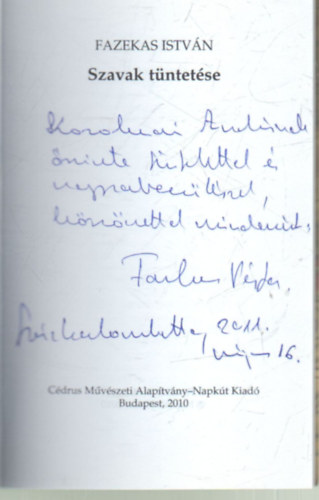 FAZEKAS ISTVÁN
Szavak tüntetése
őszinte tisztelettel és
nagyrabecsüléssel,
köszönettel mindenért,
Százhalombatta, 2011.
május 16.
Cédrus Művészeti Alapítvány–Napkút Kiadó
Budapest, 2010